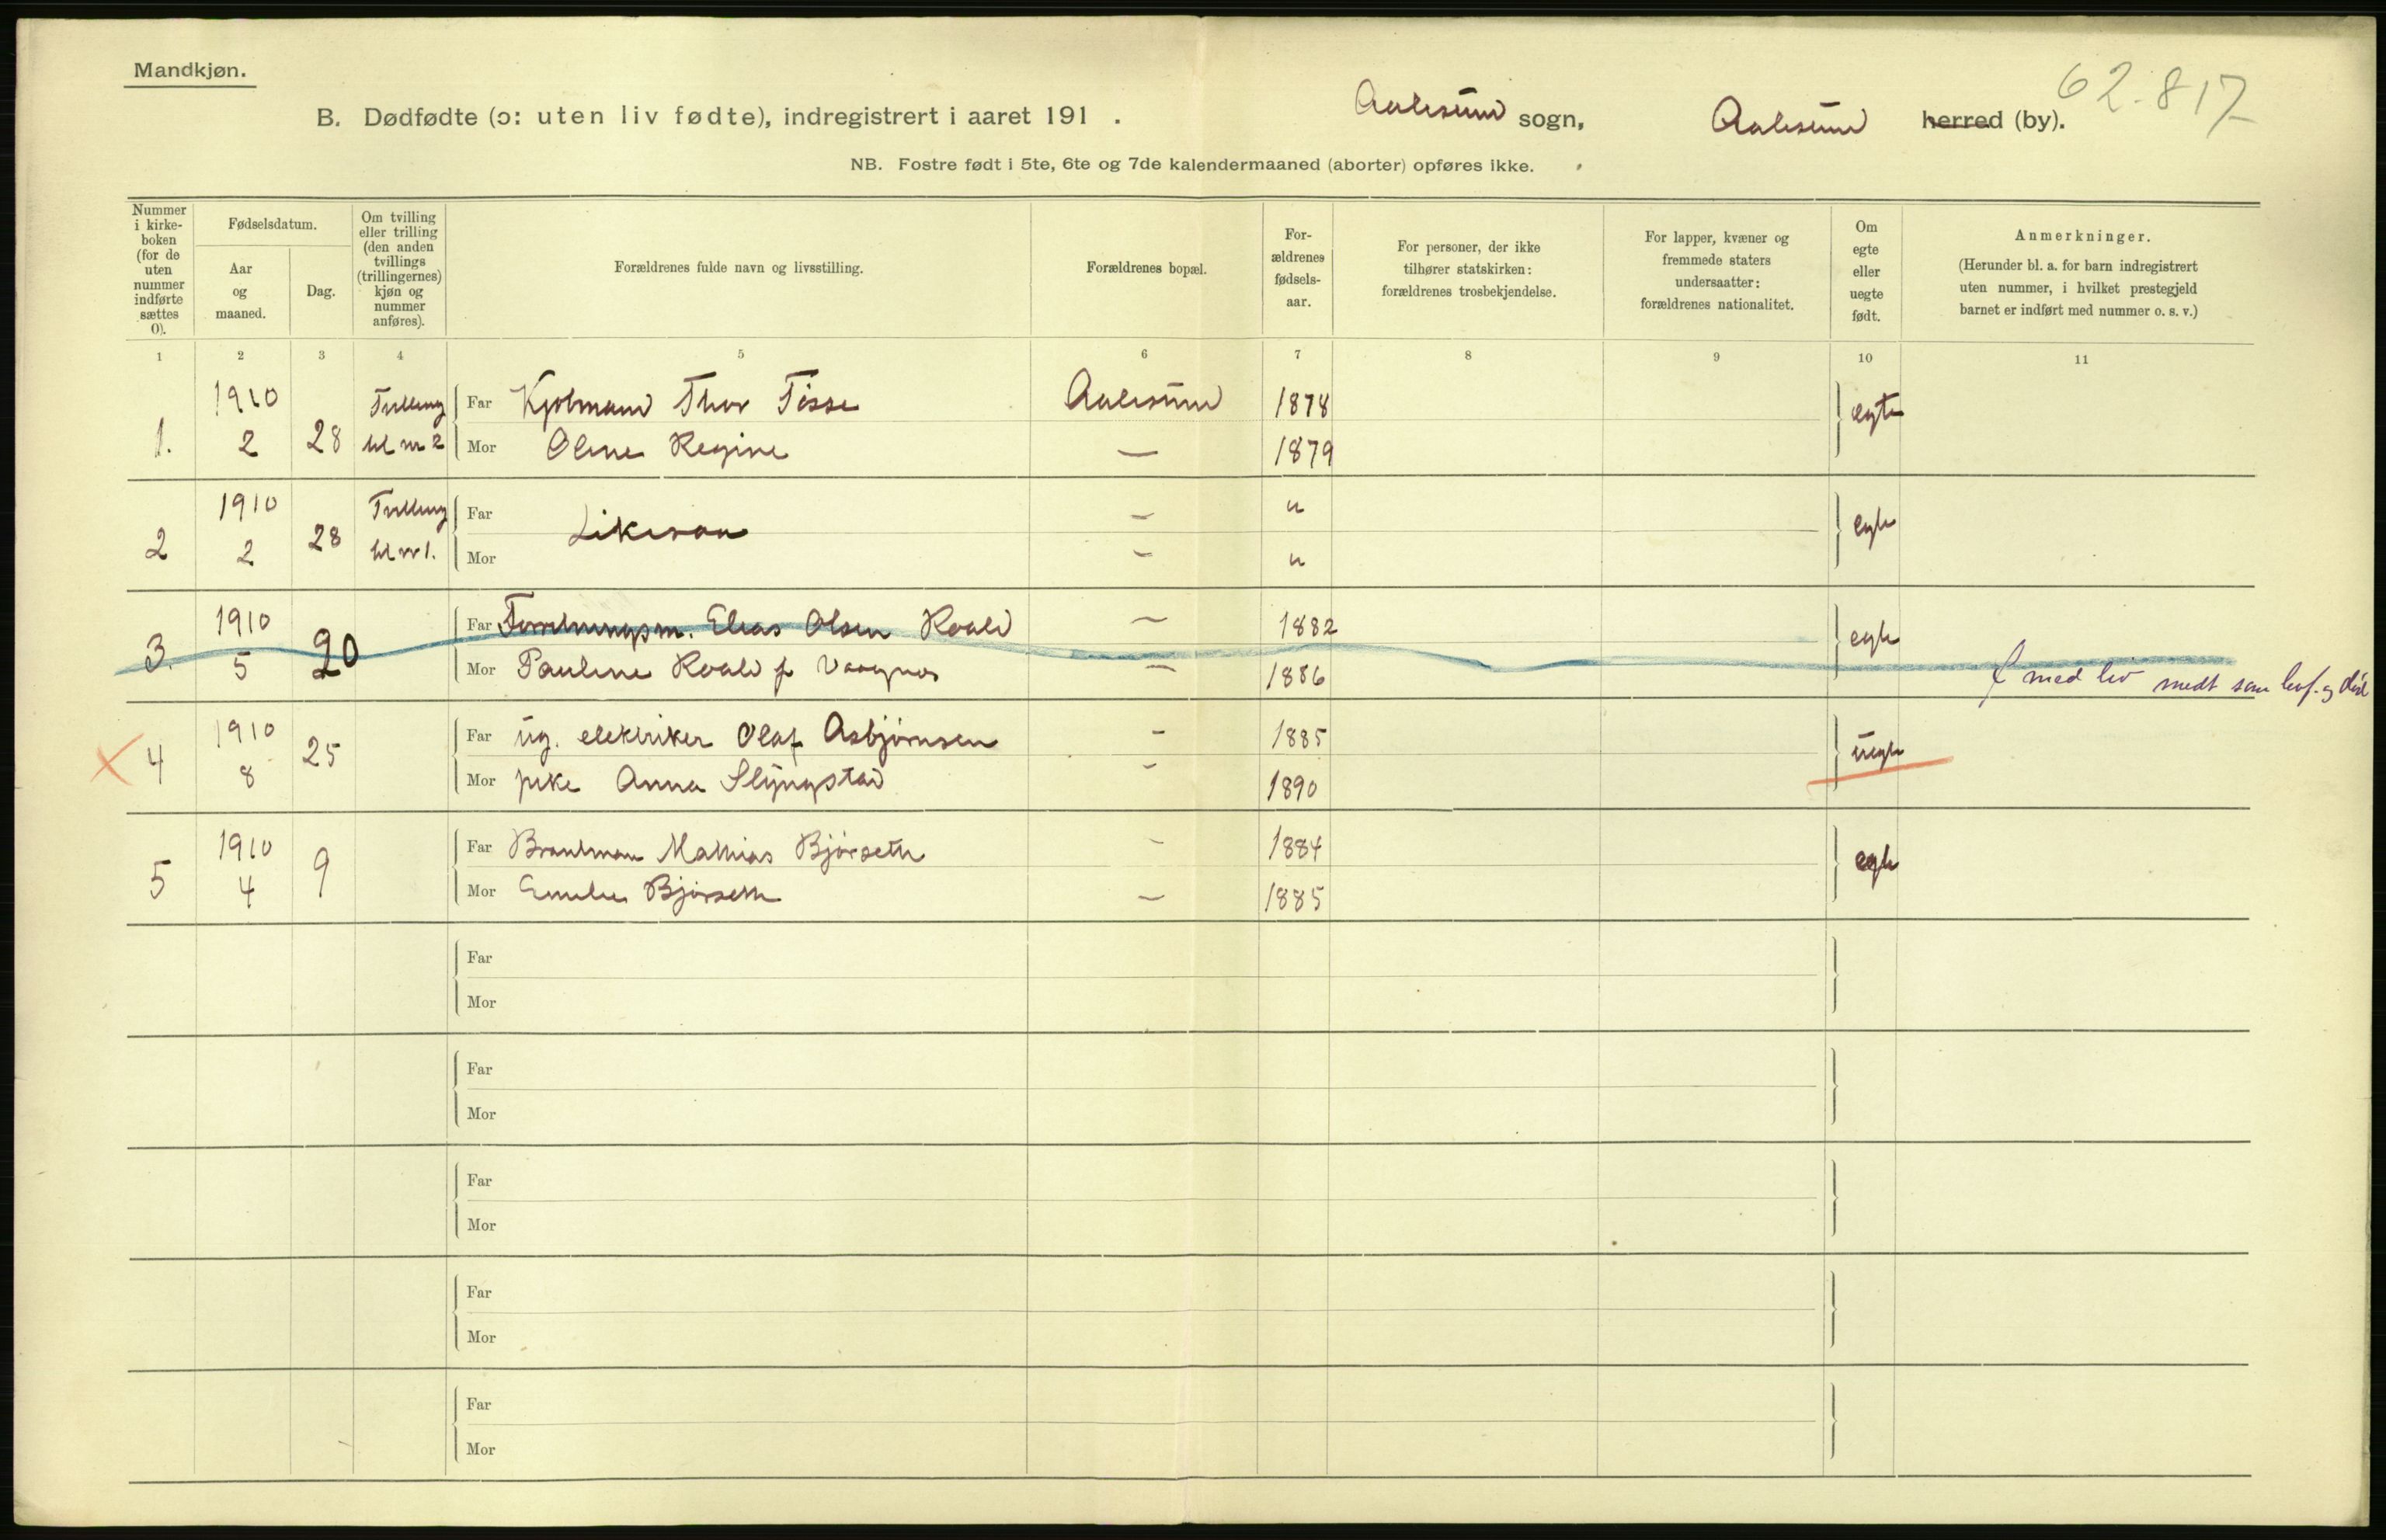 Mandkjøn.
62.817
B. Dødfødte (ɔ: uten liv fødte), indregistrert i aaret 191 . Aalesund sogn, Aalesund herred (by).
NB. Fostre født i 5te, 6te og 7de kalendermaaned (aborter) opføres ikke.
Nummer i kirke-boken (for de uten nummer indførte sættes 0).
Fødselsdatum.
Aar og maaned.
Dag.
Om tvilling eller trilling (den anden tvillings (trillingernes) kjøn og nummer anføres).
Forældrenes fulde navn og livsstilling.
Forældrenes bopæl.
For-ældrenes fødsels-aar.
For personer, der ikke tilhører statskirken: forældrenes trosbekjendelse.
For lapper, kvæner og fremmede staters undersaatter: forældrenes nationalitet.
Om egte eller uegte født.
Anmerkninger.
(Herunder bl. a. for barn indregistrert uten nummer, i hvilket prestegjeld barnet er indført med nummer o. s. v.)
1 2 3 4 5 6 7 8 9 10 11
1. 1910 2 28 Tvilling til nr 2
Far Thor Tösse Aalesund 1878 egte
Mor Oline Regine — 1879
2 1910 2 28 Tvilling til nr 1.
Far Likesaa — " egte
Mor — "
3. 1910 5 20
Far Forretningsm. Elias Olsen Roald — 1882 egte
Mor Pauline Roald f. Vaagnes — 1886
med liv medt som levf. og død
4 1910 8 25
Far ug. elektriker Olaf Asbjørnsen — 1885 uegte
Mor pike Anna Slyngstad — 1890
5 1910 4 9
Far Brandman Mathias Bjørseth — 1884 egte
Mor Emilie Bjørseth — 1885
Far
Mor
Far
Mor
Far
Mor
Far
Mor
Far
Mor